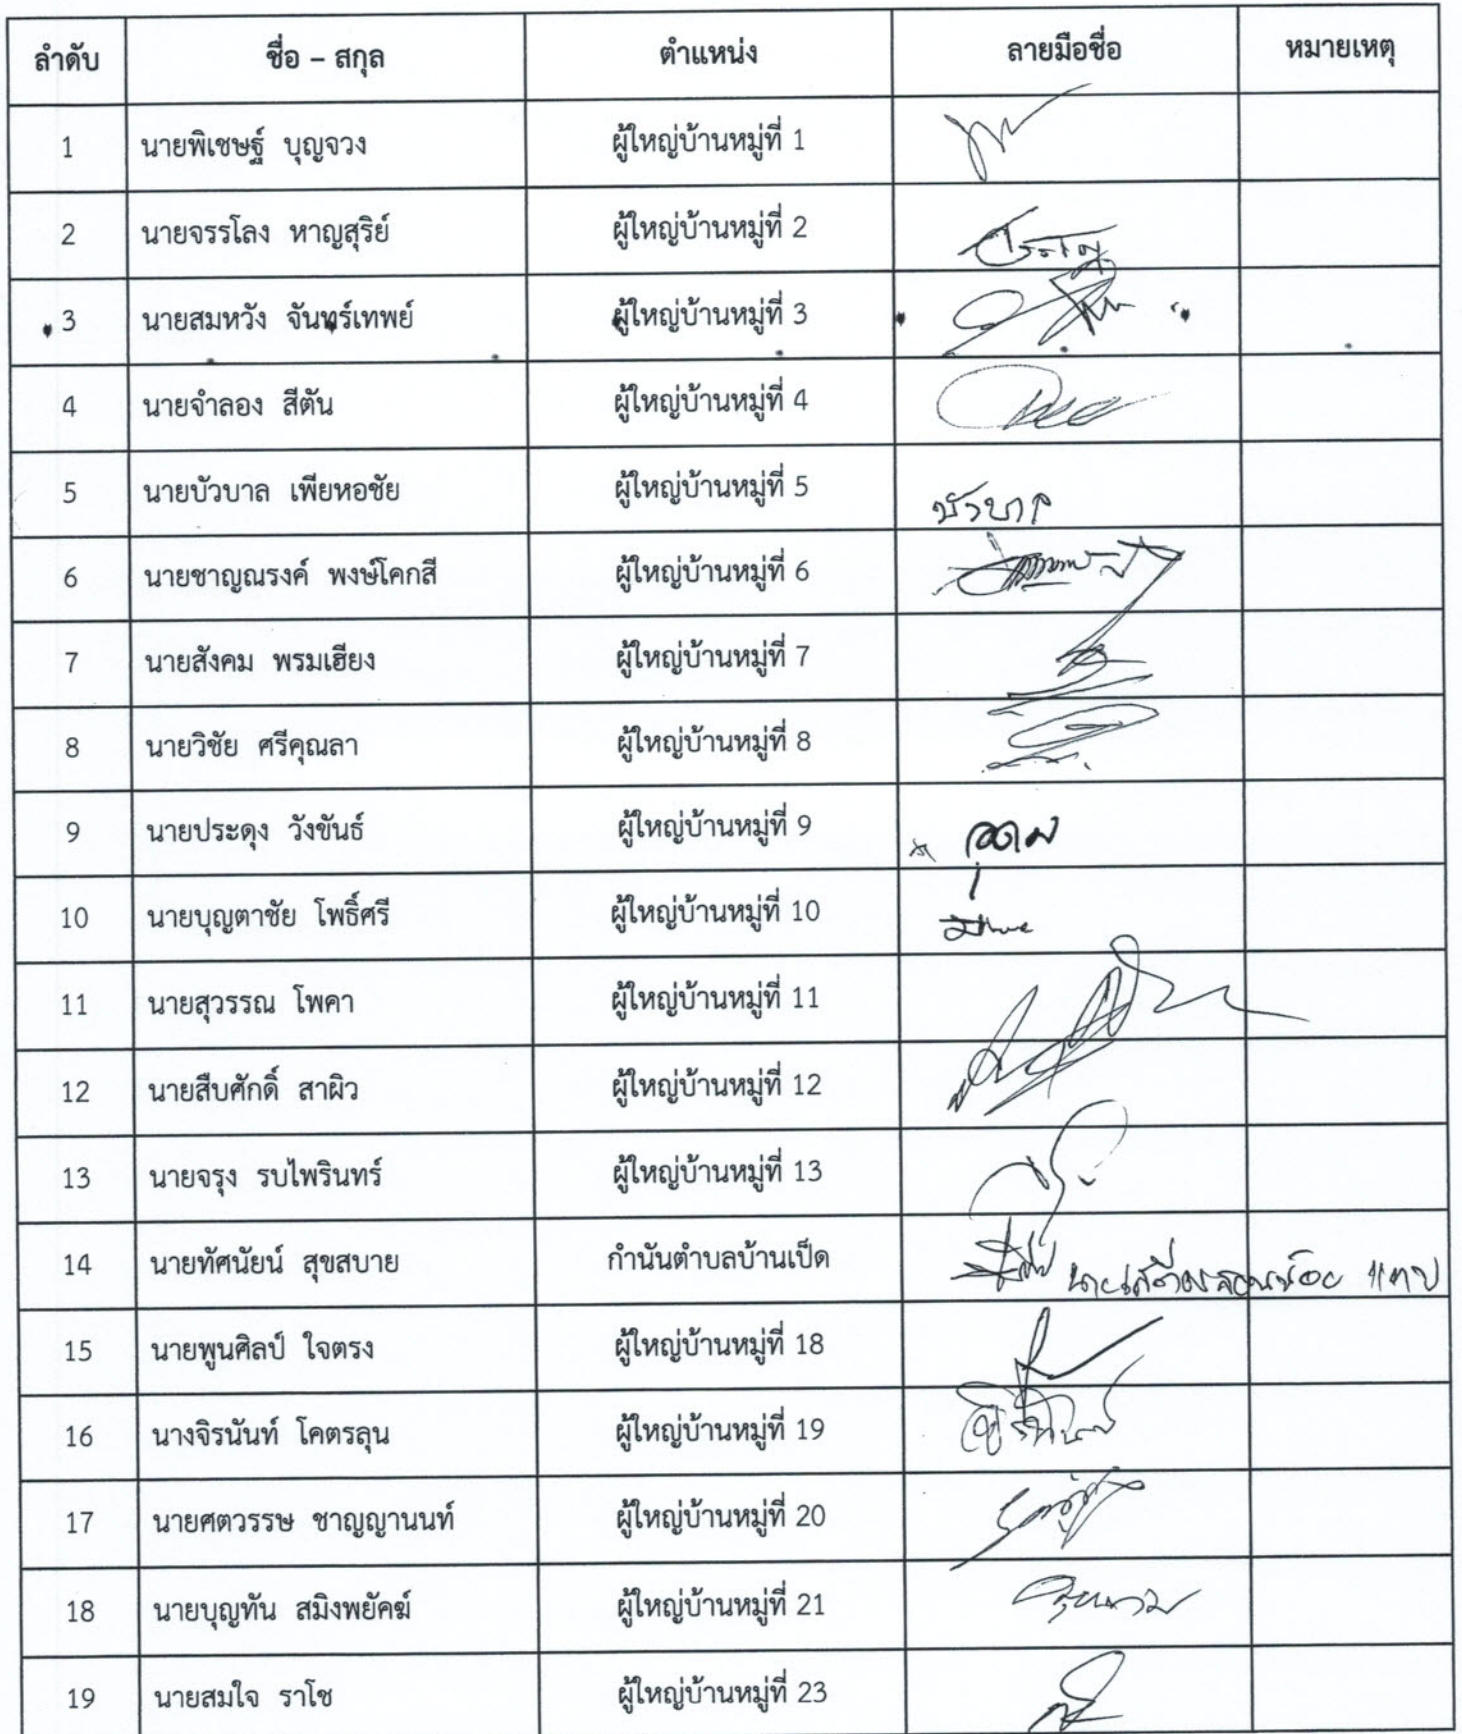 ลำดับ ชื่อ – สกุล ตำแหน่ง ลายมือชื่อ หมายเหตุ
1 นายพิเชษฐ์ บุญจวง ผู้ใหญ่บ้านหมู่ที่ 1
2 นายจรรโลง หาญสุริย์ ผู้ใหญ่บ้านหมู่ที่ 2
3 นายสมหวัง จันทร์เทพย์ ผู้ใหญ่บ้านหมู่ที่ 3
4 นายจำลอง สีตัน ผู้ใหญ่บ้านหมู่ที่ 4
5 นายบัวบาล เพียหอชัย ผู้ใหญ่บ้านหมู่ที่ 5 บัวบาล
6 นายชาญณรงค์ พงษ์โคกสี ผู้ใหญ่บ้านหมู่ที่ 6
7 นายสังคม พรมเฮียง ผู้ใหญ่บ้านหมู่ที่ 7
8 นายวิชัย ศรีคุณลา ผู้ใหญ่บ้านหมู่ที่ 8
9 นายประดุง วังขันธ์ ผู้ใหญ่บ้านหมู่ที่ 9
10 นายบุญตาชัย โพธิ์ศรี ผู้ใหญ่บ้านหมู่ที่ 10
11 นายสุวรรณ โพคา ผู้ใหญ่บ้านหมู่ที่ 11
12 นายสืบศักดิ์ สาผิว ผู้ใหญ่บ้านหมู่ที่ 12
13 นายจรุง รบไพรินทร์ ผู้ใหญ่บ้านหมู่ที่ 13
14 นายทัศนัยน์ สุขสบาย กำนันตำบลบ้านเป็ด แทน
15 นายพูนศิลป์ ใจตรง ผู้ใหญ่บ้านหมู่ที่ 18
16 นางจิรนันท์ โคตรลุน ผู้ใหญ่บ้านหมู่ที่ 19
17 นายศตวรรษ ชาญญานนท์ ผู้ใหญ่บ้านหมู่ที่ 20
18 นายบุญทัน สมิงพยัคฆ์ ผู้ใหญ่บ้านหมู่ที่ 21
19 นายสมใจ ราโช ผู้ใหญ่บ้านหมู่ที่ 23